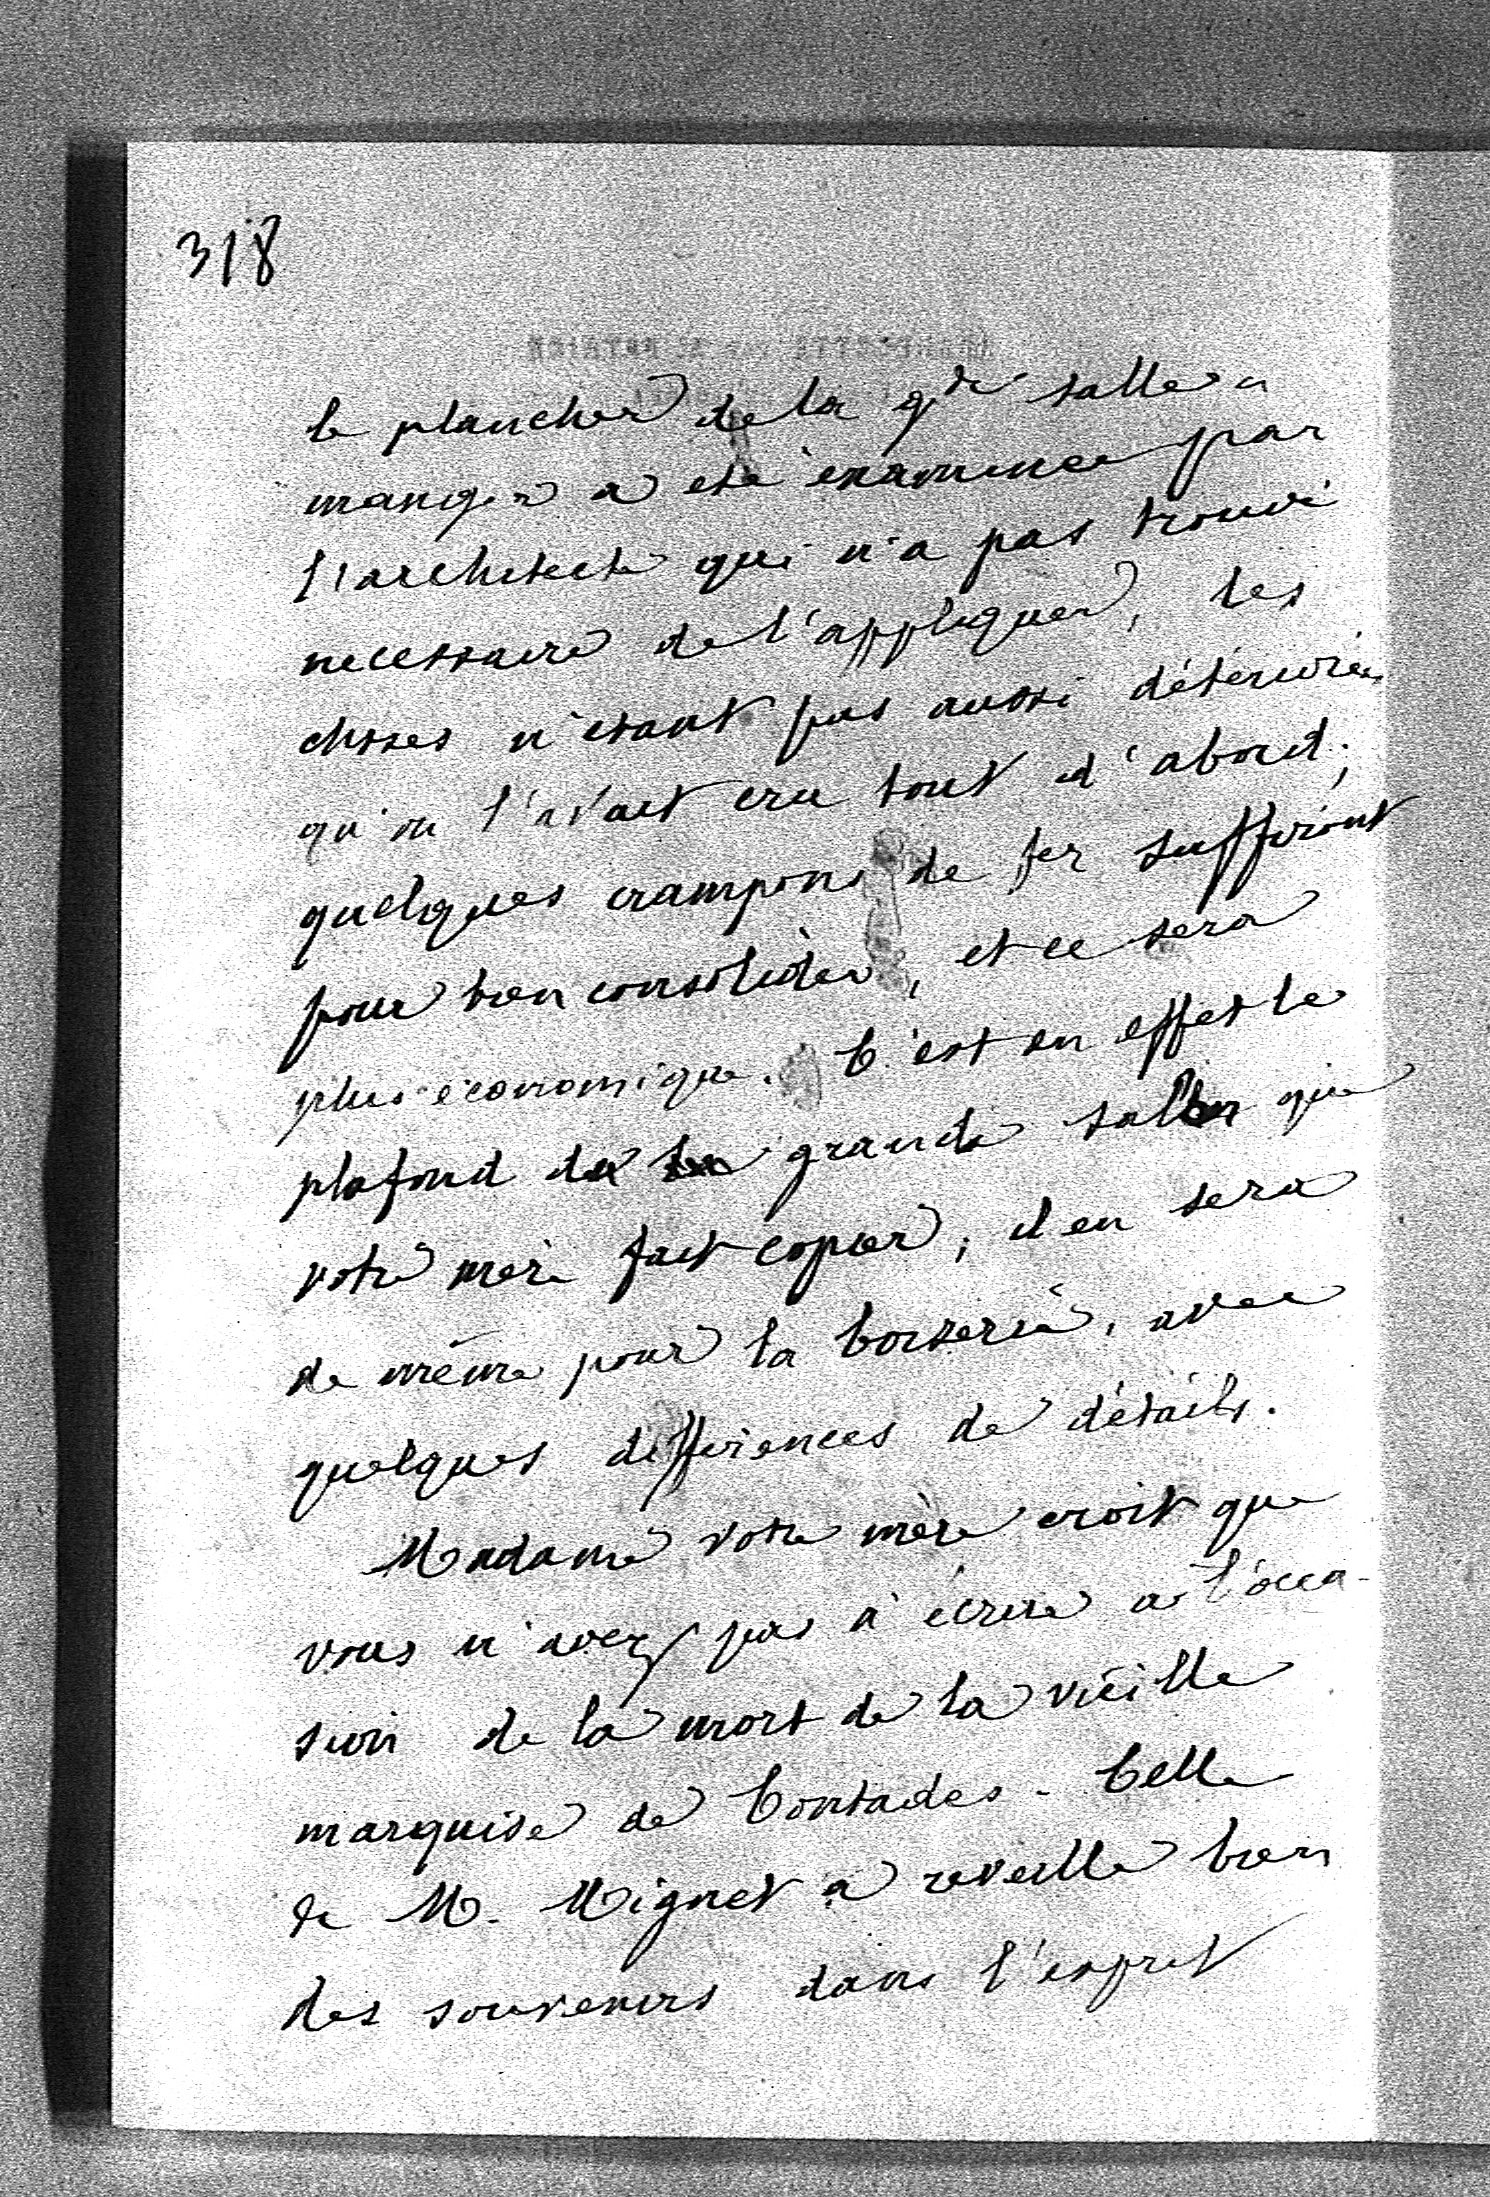 318
le plancher de la gde salle a
manger a eté examinée par
l'architecte qui n'a pas trouvé
necessaire de l'appliquer, les
choses n'etant pas aussi détériorées
qu'on l'avait cru tout d'abord;
quelques crampons de fer suffiront
pour bien consolider, et ce sera
plus économique. C'est en effet le
plafond du grand salon que
votre mère fait copier; il en sera
de même pour la boiserie, avec
quelques différences de détails.
Madame votre mère croit que
vous n'avez pas à écrire a l'occa-
sion de la mort de la vieille
marquise de Contades. Celle
de M. Mignet a reveillé bien
des souvenirs dans l'esprit